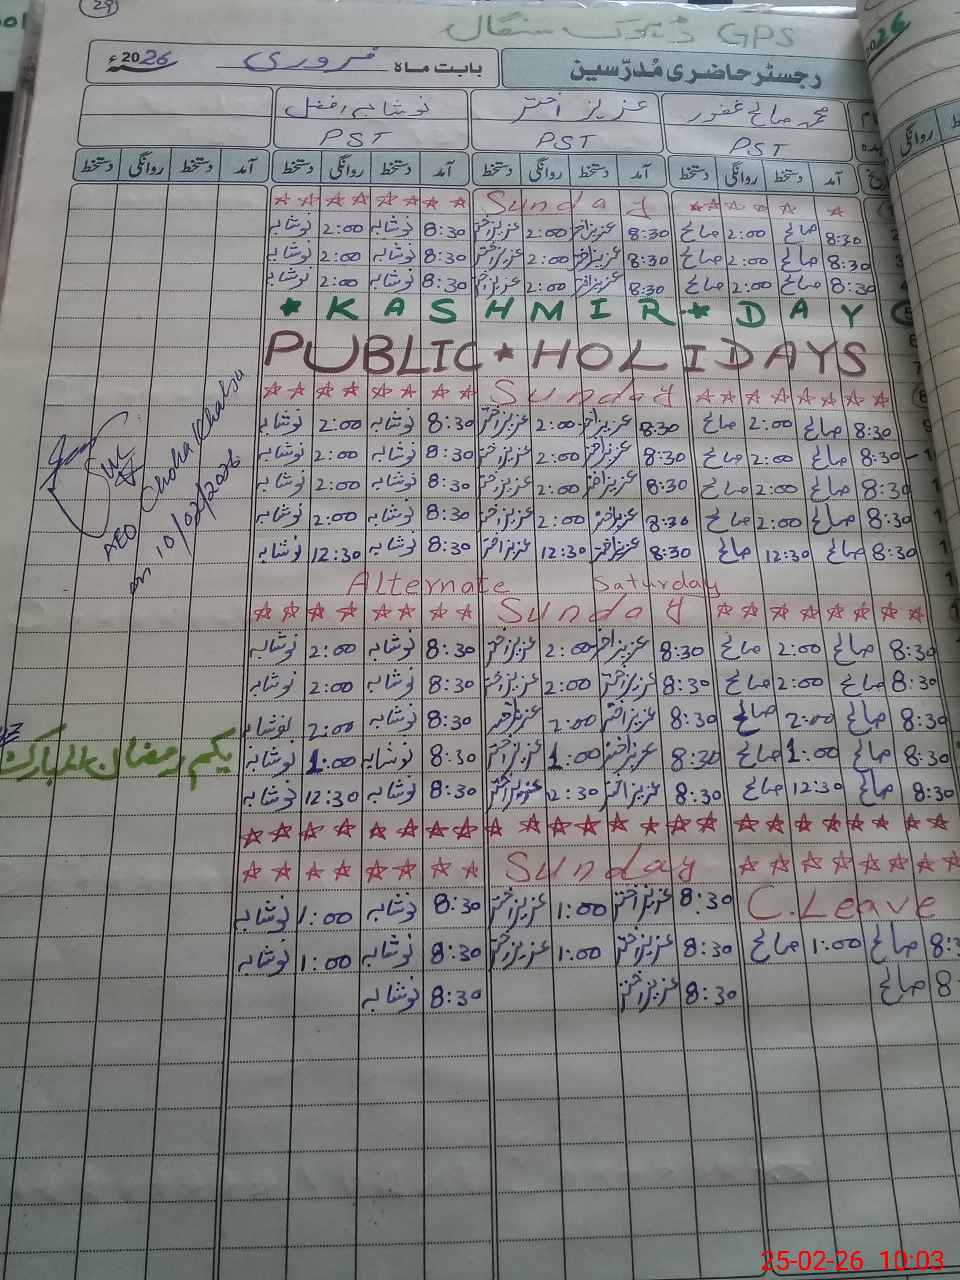 29
GPS ڈہوک سنگال
رجسٹر حاضری مُدرّسین بابت ماہ فروری 2026ء
محمد صالح غفور عزیز اختر نوشابہ افضل
PST PST PST
آمد دستخط روانگی دستخط آمد دستخط روانگی دستخط آمد دستخط روانگی دستخط آمد دستخط روانگی دستخط
Sunday
8:30 صالح 2:00 صالح 8:30 عزیز اختر 2:00 عزیز اختر 8:30 نوشابہ 2:00 نوشابہ
8:30 صالح 2:00 صالح 8:30 عزیز اختر 2:00 عزیز اختر 8:30 نوشابہ 2:00 نوشابہ
8:30 صالح 2:00 صالح 8:30 عزیز اختر 2:00 عزیز اختر 8:30 نوشابہ 2:00 نوشابہ
★ KASHMIR ★ DAY 5
PUBLIC ★ HOLIDAYS
Sunday 8
8:30 صالح 2:00 صالح 8:30 عزیز اختر 2:00 عزیز اختر 8:30 نوشابہ 2:00 نوشابہ
8:30 صالح 2:00 صالح 8:30 عزیز اختر 2:00 عزیز اختر 8:30 نوشابہ 2:00 نوشابہ
8:30 صالح 2:00 صالح 8:30 عزیز اختر 2:00 عزیز اختر 8:30 نوشابہ 2:00 نوشابہ
8:30 صالح 2:00 صالح 8:30 عزیز اختر 2:00 عزیز اختر 8:30 نوشابہ 2:00 نوشابہ
8:30 صالح 12:30 صالح 8:30 عزیز اختر 12:30 عزیز اختر 8:30 نوشابہ 12:30 نوشابہ
AEO Choha Khalsa
on 10/02/2026
Alternate Saturday
Sunday
8:30 صالح 2:00 صالح 8:30 عزیز اختر 2:00 عزیز اختر 8:30 نوشابہ 2:00 نوشابہ
8:30 صالح 2:00 صالح 8:30 عزیز اختر 2:00 عزیز اختر 8:30 نوشابہ 2:00 نوشابہ
8:30 صالح 2:00 صالح 8:30 عزیز اختر 2:00 عزیز اختر 8:30 نوشابہ 2:00 نوشابہ
8:30 صالح 1:00 صالح 8:30 عزیز اختر 1:00 عزیز اختر 8:30 نوشابہ 1:00 نوشابہ یکم رمضان المبارک
8:30 صالح 12:30 صالح 8:30 عزیز اختر 2:30 عزیز اختر 8:30 نوشابہ 12:30 نوشابہ
Sunday
C.Leave 8:30 عزیز اختر 1:00 عزیز اختر 8:30 نوشابہ 1:00 نوشابہ
8:3 صالح 1:00 صالح 8:30 عزیز اختر 1:00 عزیز اختر 8:30 نوشابہ 1:00 نوشابہ
8: صالح 8:30 عزیز اختر 8:30 نوشابہ
25-02-26 10:03